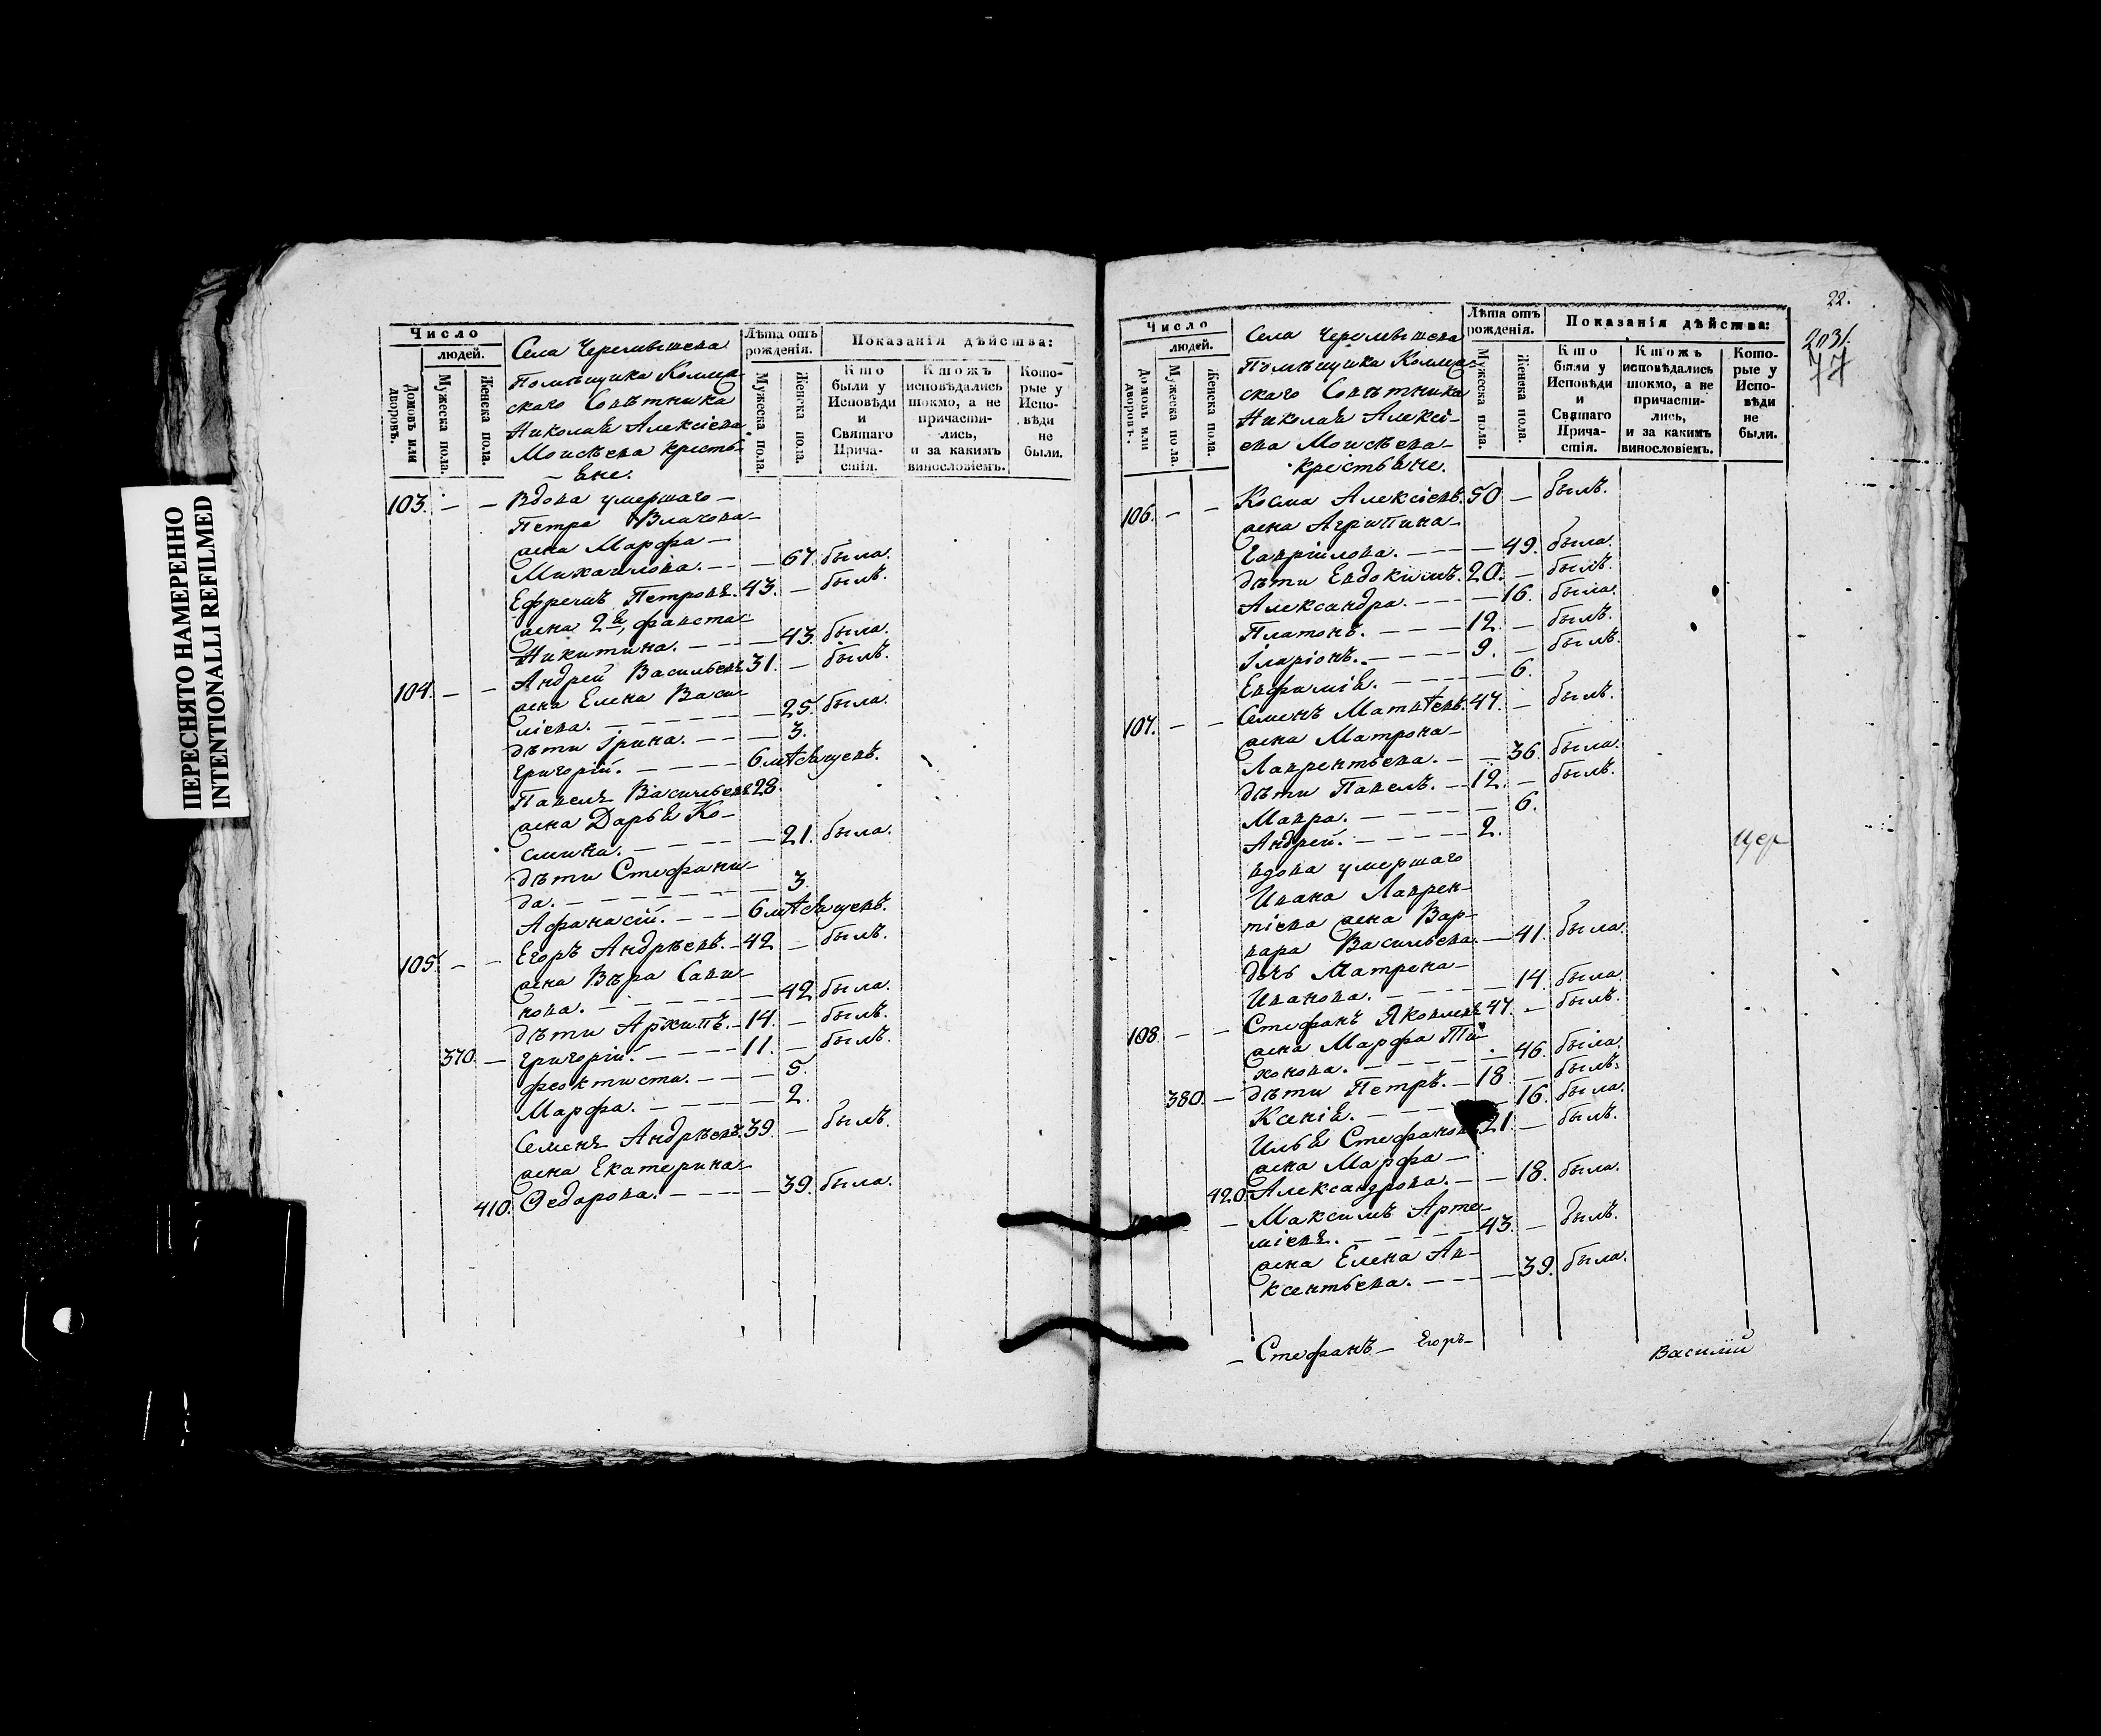 ПЕРЕСНЯТО НАМЕРЕННО
INTENTIONALLI REFILMED
Число
людей.
Домовъ или дворовъ.
Мужеска пола.
Женска пола.
Села Черемышева
Помѣщика Коллеж-
скаго Совѣтника
Николая Алексіева
Моисѣева крестья-
яне.
Лѣта отъ рожденія.
Мужеска пола.
Женска пола.
Показанія дѣйства:
Кто были у Исповѣди и Святаго Причастія.
Ктожъ исповѣдались токмо, а не причастились, и за какимъ винословіемъ.
Которые у Исповѣди не были.
103. — — Вдова умершаго —
Петра Власова —
жена Марфа —
Михаилова. — — — 67. была.
Ефремъ Петровъ. 43. — былъ.
жена 2я, фавста
Никитина. — — — 43. была.
104. — — Андрей Васильевъ 31. — былъ.
жена Елена Васи-
ліева. — — — 25. была.
дѣти Ірина. — — — 3.
Григорій. — — — 6 мѣсяцевъ.
Павелъ Васильевъ 28.
жена Дарья Ко-
смина. — — — 21. была.
дѣти Стефани-
да. — — — 3.
Афанасій. — — — 6 мѣсяцевъ.
105. — — Егоръ Андрѣевъ. — 42 — былъ.
жена Вѣра Сави-
нова. — — — 42 была.
дѣти Архипъ. — 14. — былъ.
370. — Григорій. — — — 11. — былъ.
феоктиста. — — — 5.
Марфа. — — — 2.
Семенъ Андрѣевъ. 39. — былъ.
жена Екатерина —
410. Федарова. — — — 39. была.
22.
2031.
77
Число
людей.
Домовъ или дворовъ.
Мужеска пола.
Женска пола.
Села Черемышева
Помѣщика Коллеж-
скаго Совѣтника
Николая Алексі-
ева Моисѣева —
крестьяне.
Лѣта отъ рожденія.
Мужеска пола.
Женска пола.
Показанія дѣйства:
Кто были у Исповѣди и Святаго Причастія.
Ктожъ исповѣдались токмо, а не причастились, и за какимъ винословіемъ.
Которые у Исповѣди не были.
106. — — Косма Алексіевъ. 50 — былъ.
жена Агрипина —
Гавріилова. — — — 49. была.
дѣти Евдокимъ. 20. — былъ.
Александра. — — — 16. была.
Платонъ. — — — 12. — былъ.
Іларіонъ. — — — 9. — былъ.
Евфимія. — — — 6.
107. — — Семенъ Матвѣевъ. 47. — былъ.
жена Матрона —
Лаврентьева. — — 36. была.
дѣти Павелъ. — 12. — былъ.
Мавра. — — — 6.
Андрей. — — — 2.
вдова умершаго
Ивана Лаврен-
тіева жена Вар-
вара Васильева. — 41. была.
дочь Матрена —
Иванова. — — — 14. была.
108. — — Стефанъ Яковлевъ 47. — былъ.
жена Марфа Ти-
хонова. — — — 46. была.
380. — дѣти Петръ. — 18. — былъ.
Ксенія. — — — 16. была.
Илья Стефановъ 21. — былъ.
жена Марфа —
420. Александрова. — — 18. была.
— Максимъ Арте-
міевъ. — — — 43. — былъ.
жена Елена Ав-
ксентьева. — — — 39. была.
— Стефанъ — Егоръ —
Василій